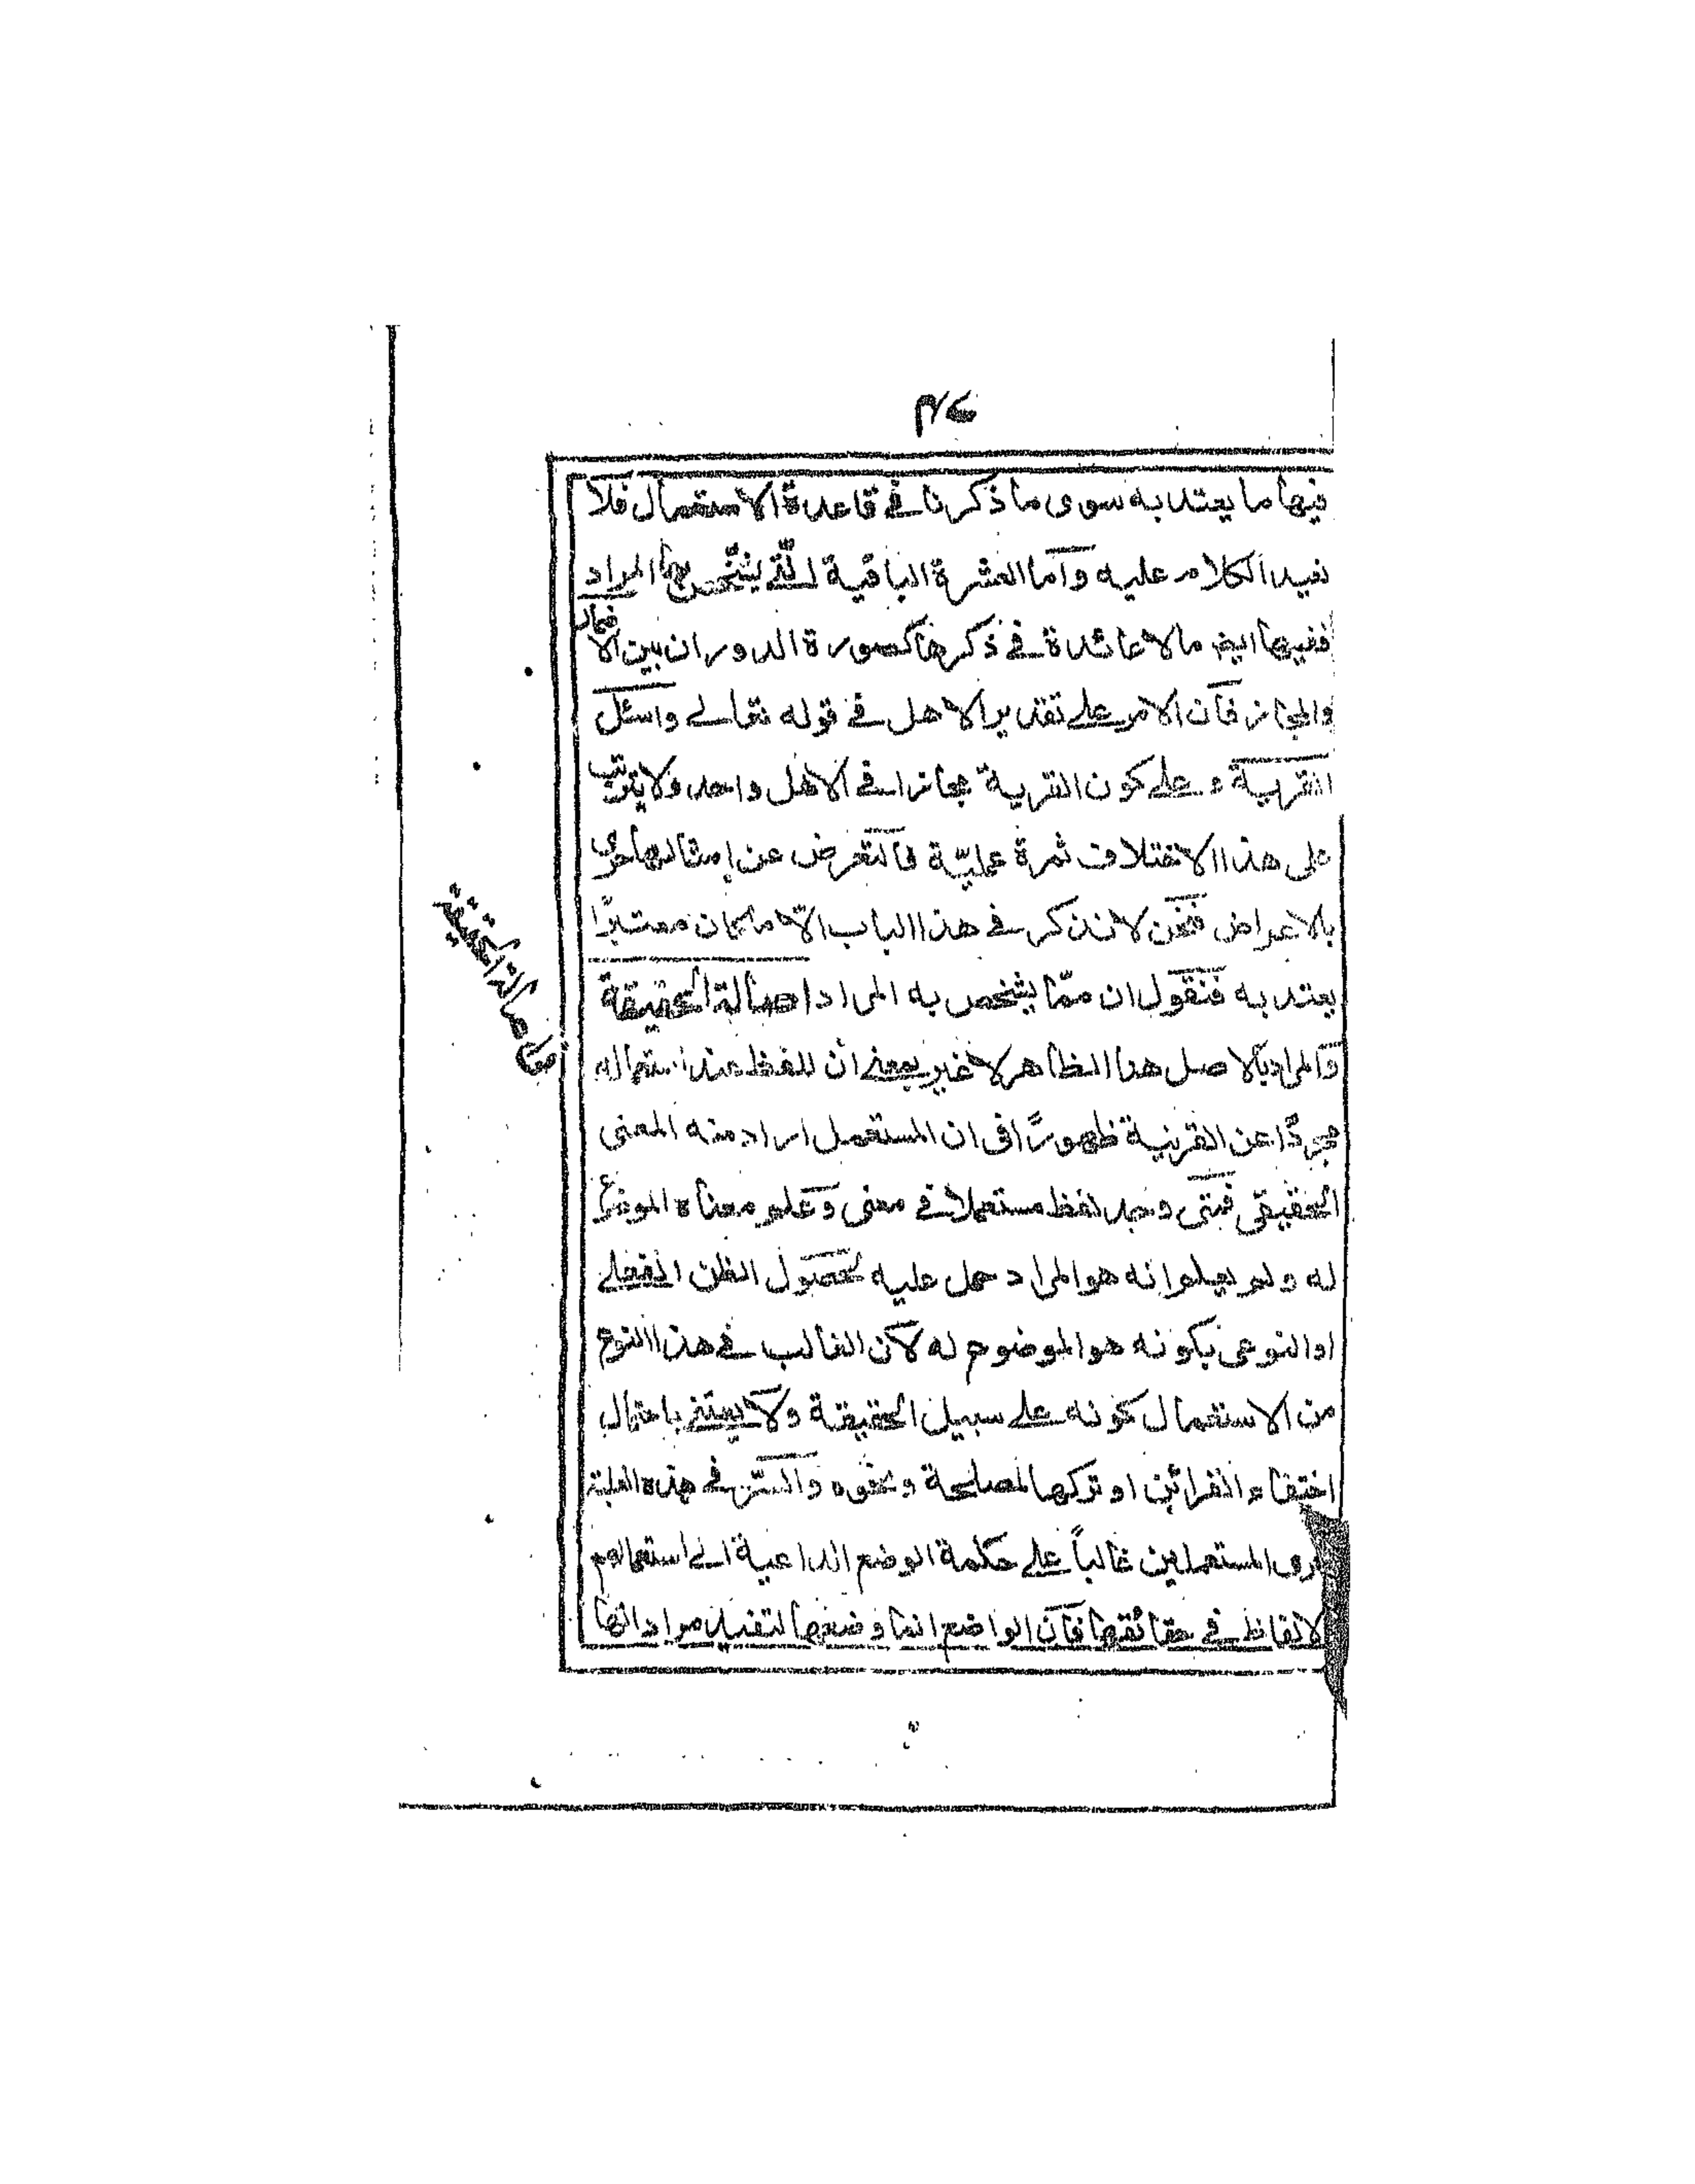 فيها ما يعتد به سوى ما ذكرنا في قاعدة الاستعمال فلا
نعيد الكلام عليه واما العشرة الباقية التي يشخص بها المراد
ففيها ايض ما لا عائدة في ذكرها كصورة الدوران بين الاضمار
والمجاز فان الامر على تقدير الاهل في قوله تعالى واسئل
القرية وعلى كون القرية مجازا في الاهل واحد ولا يترتب
على هذا الاختلاف ثمرة عمليّة فالتعرض عن امثالها حرى
بالاعراض فنحن لا نذكر في هذا الباب الّا ما كان معتبرًا
يعتد به فنقول ان ممّا يشخص به المراد اصالة الحقيقة
والمراد بالاصل هنا الظاهر لا غير بمعنى ان للفظ عند استعماله
مجردًا عن القرينة ظهورًا في ان المستعمل اراد منه المعنى
الحقيقي فمتى وجد لفظ مستعملا في معنى وعلم معناه الموضوع
له ولم يعلم انه هو المراد حمل عليه لحصول الظن الفعلي
او النوعى بكونه هو الموضوع له لان الغالب في هذا النوع
من الاستعمال كونه على سبيل الحقيقة ولا يعتنى باحتمال
اختفاء القرائن او تركها لمصلحة ونحوه والسّر في هذه الغلبة
المستعملين غالباً على حكمة الوضع الداعية الى استعمالهم
الالفاظ في حقائقها فان الواضع انما وضعها لتفيد مراداتها
اصالة الحقيقة